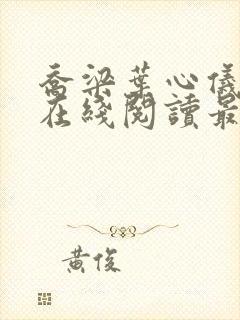 喬梁葉心儀
在綫閱讀最
黃俊